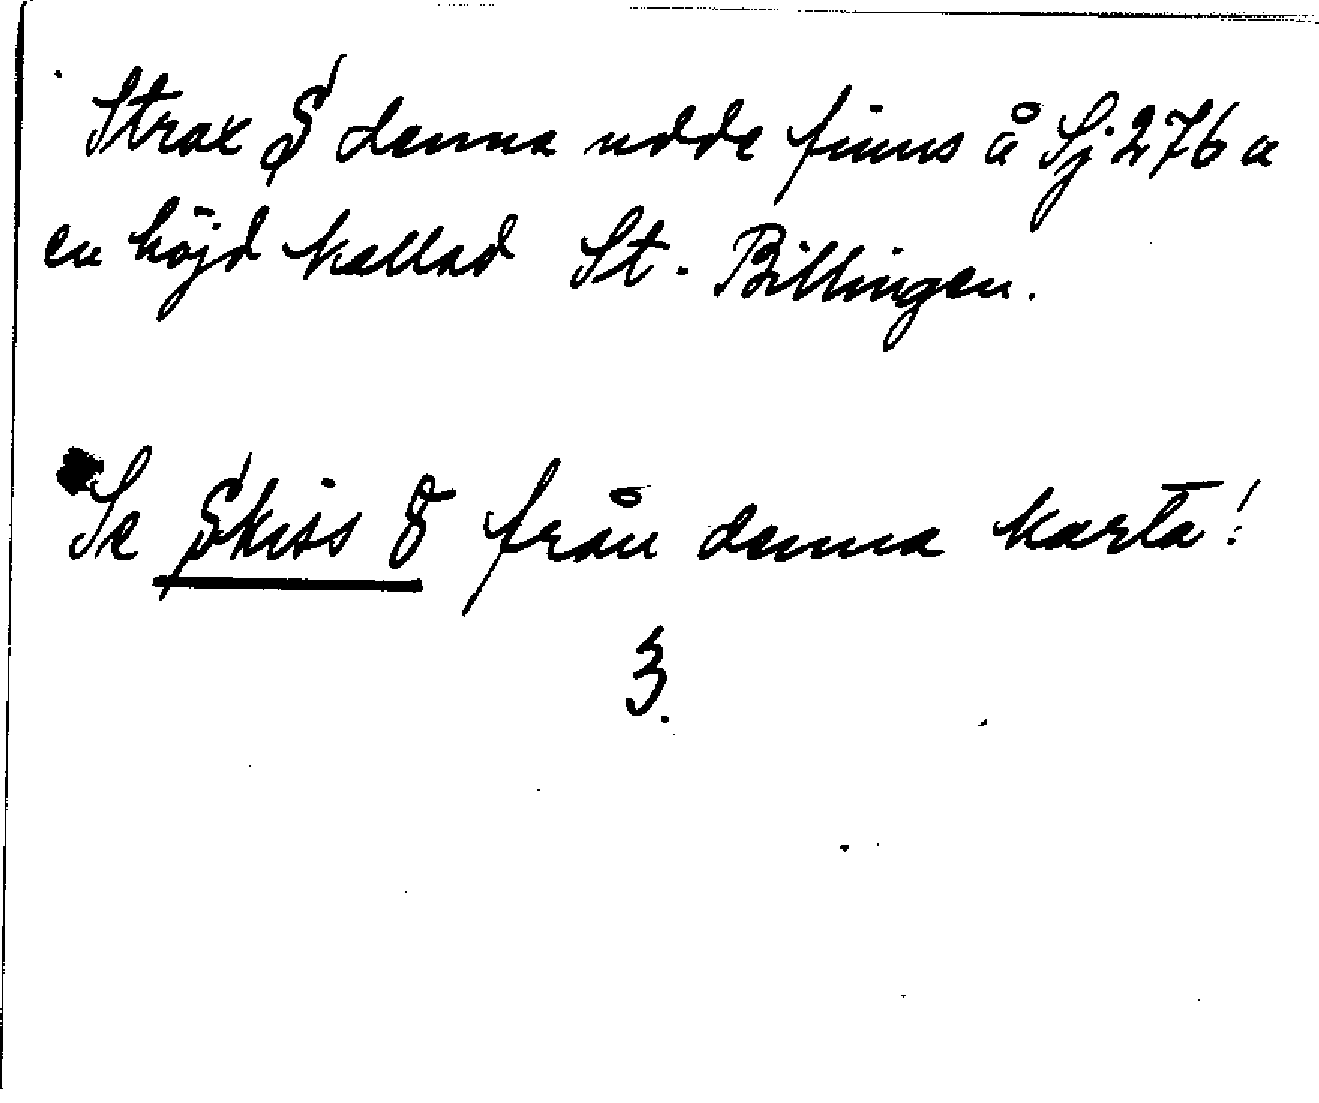 Strax S denna udde finns å Sj 276 a
en höjd kallad St. Billingen.
Se Skiss 8 från denna karta!
3.